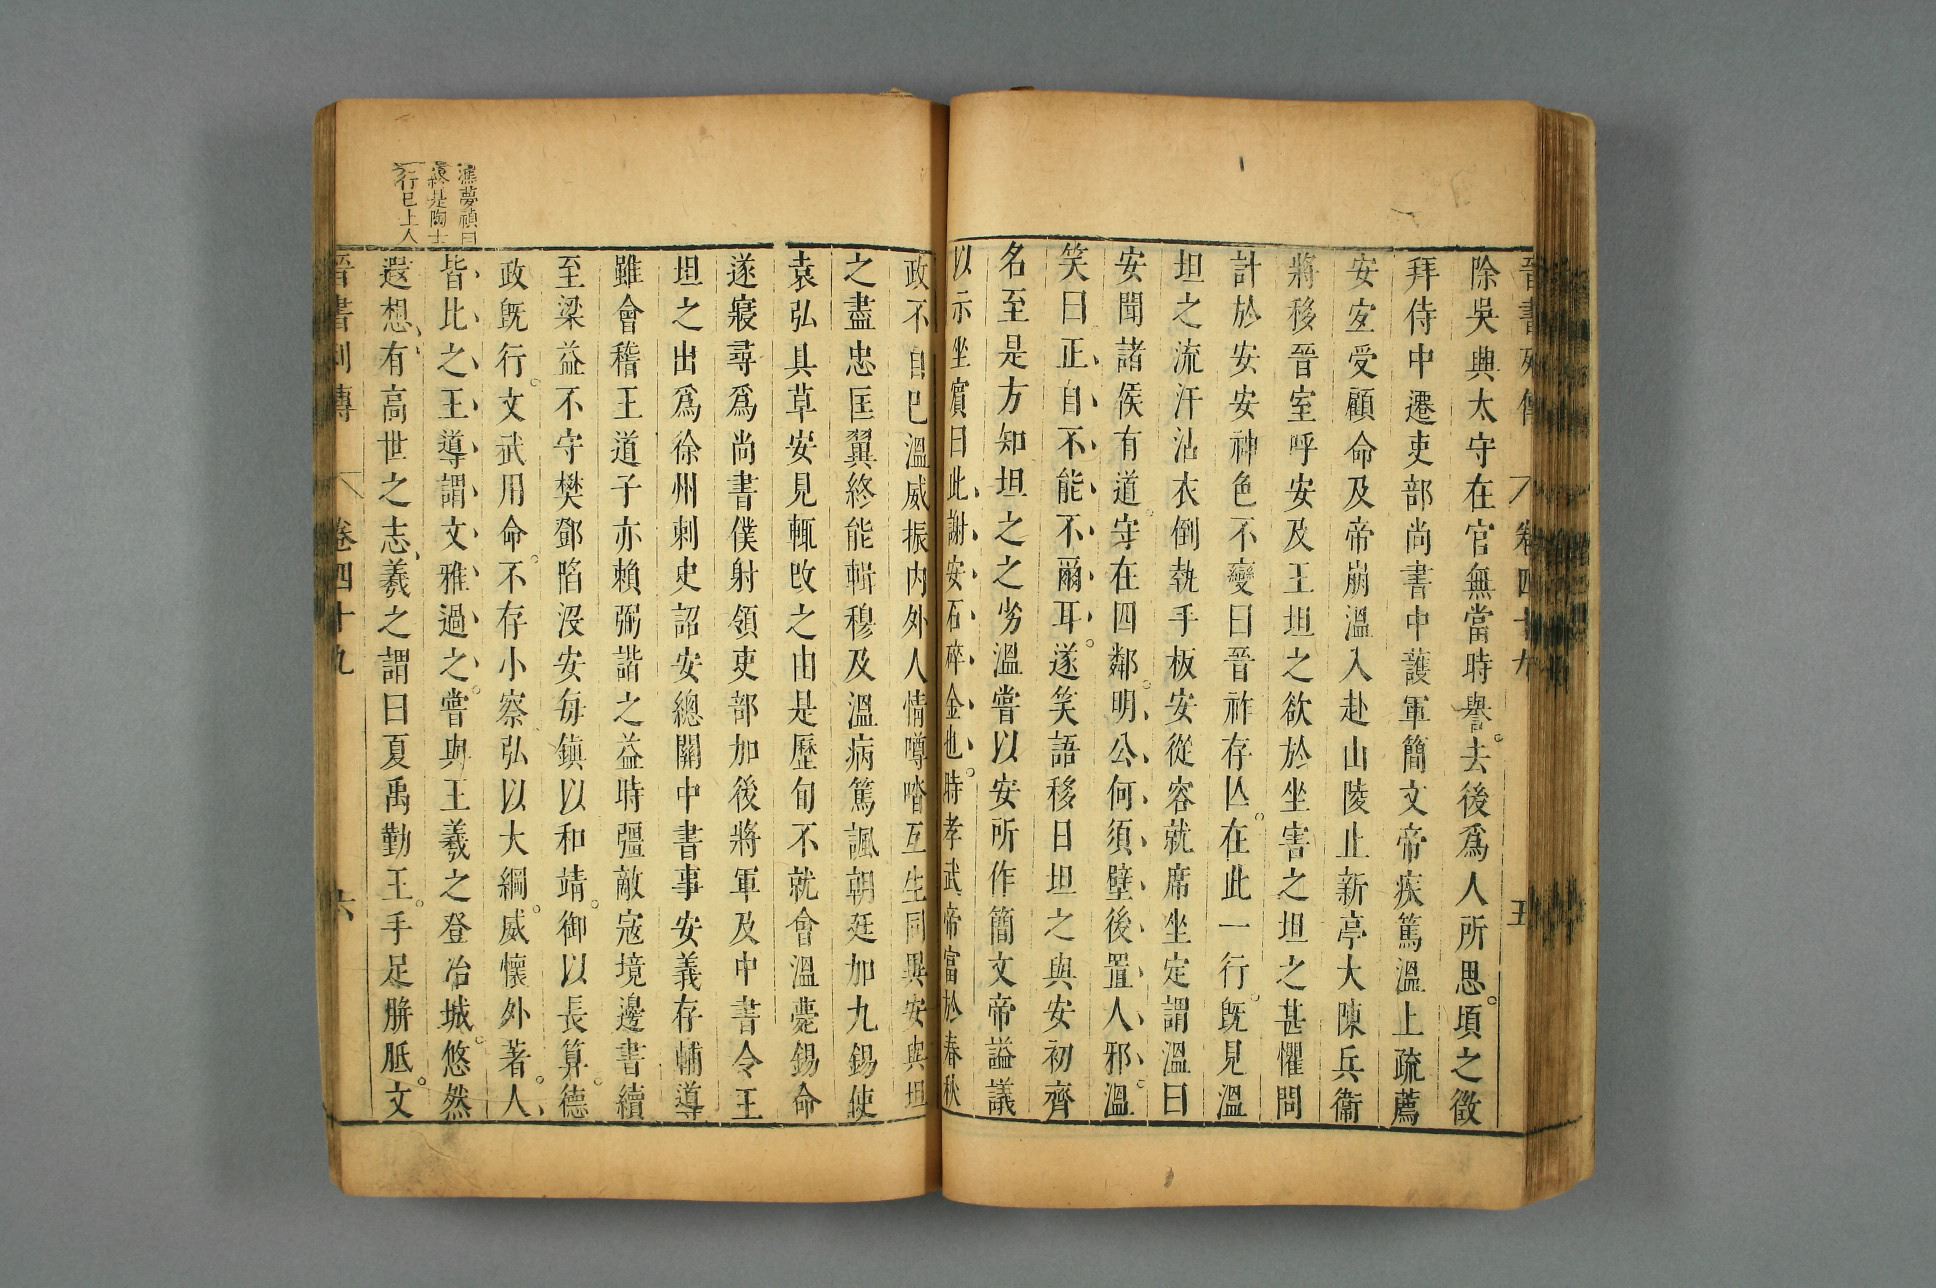 晉書列傳 卷四十九 五
除吳興太守在官無當時譽去後爲人所思頃之徵
拜侍中遷吏部尚書中護軍簡文帝疾篤溫上疏薦
安宜受顧命及帝崩溫入赴山陵止新亭大陳兵衞
將移晉室呼安及王坦之欲於坐害之坦之甚懼問
計於安安神色不變曰晉祚存亾在此一行旣見溫
坦之流汗沾衣倒執手板安從容就席坐定謂溫曰
安聞諸侯有道守在四鄰明公何須壁後置人邪溫
笑曰正自不能不爾耳遂笑語移日坦之與安初齊
名至是方知坦之之劣溫嘗以安所作簡文帝謚議
以示坐賓曰此謝安石碎金也時孝武帝富於春秋
政不自己溫威振內外人情噂㳫互生同異安與坦
之盡忠匡翼終能輯穆及溫病篤諷朝廷加九錫使
袁弘具草安見輒改之由是歷旬不就會溫薨錫命
遂寢尋爲尚書僕射領吏部加後將軍及中書令王
坦之出爲徐州刺史詔安總關中書事安義存輔導
雖會稽王道子亦賴弼諧之益時彊敵寇境邊書續
至梁益不守樊鄧陷沒安每鎮以和靖御以長算德
政旣行文武用命不存小察弘以大綱威懷外著人
皆比之王導謂文雅過之嘗與王羲之登冶城悠然
遐想有高世之志羲之謂曰夏禹勤王手足胼胝文
夢禎曰
終是陶士
行已上人
晉書列傳 卷四十九 六